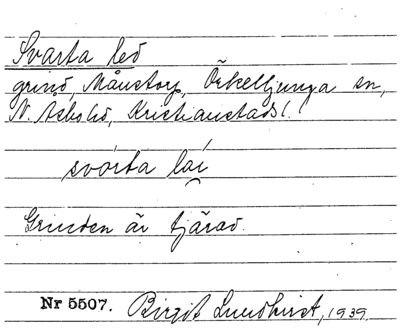 Svarta led
grind, Månstorp, Örkelljunga sn,
N. Åsbo hd, Kristianstads l.
svárta laí
Grinden är tjärad.
Nr 5507. Birgit Lundkvist, 1939.